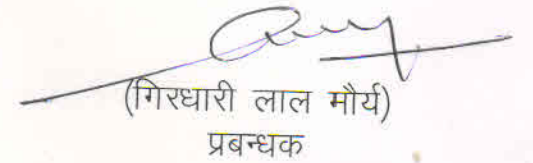 (गिरधारी लाल मौर्य)
प्रबन्धक